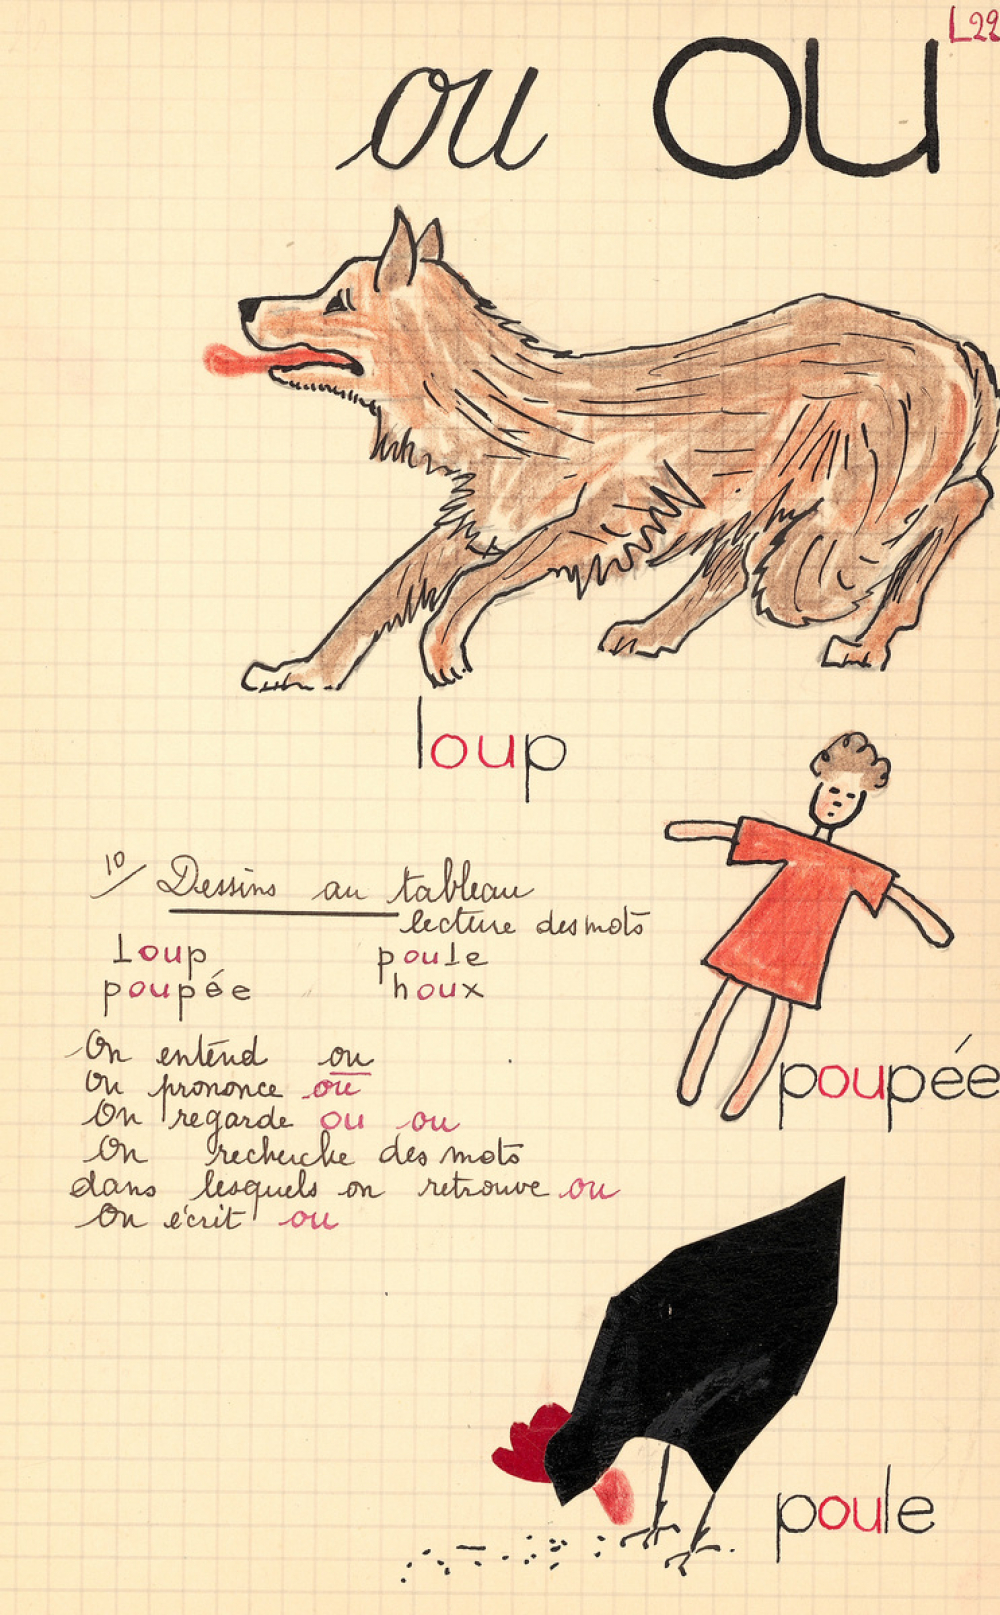 L22
ou ou
loup
1º/ Dessins au tableau
lecture des mots
loup poule
poupée houx
On entend ou
On prononce ou
On regarde ou ou
On recherche des mots
dans lesquels on retrouve ou
On écrit ou
poupée
poule